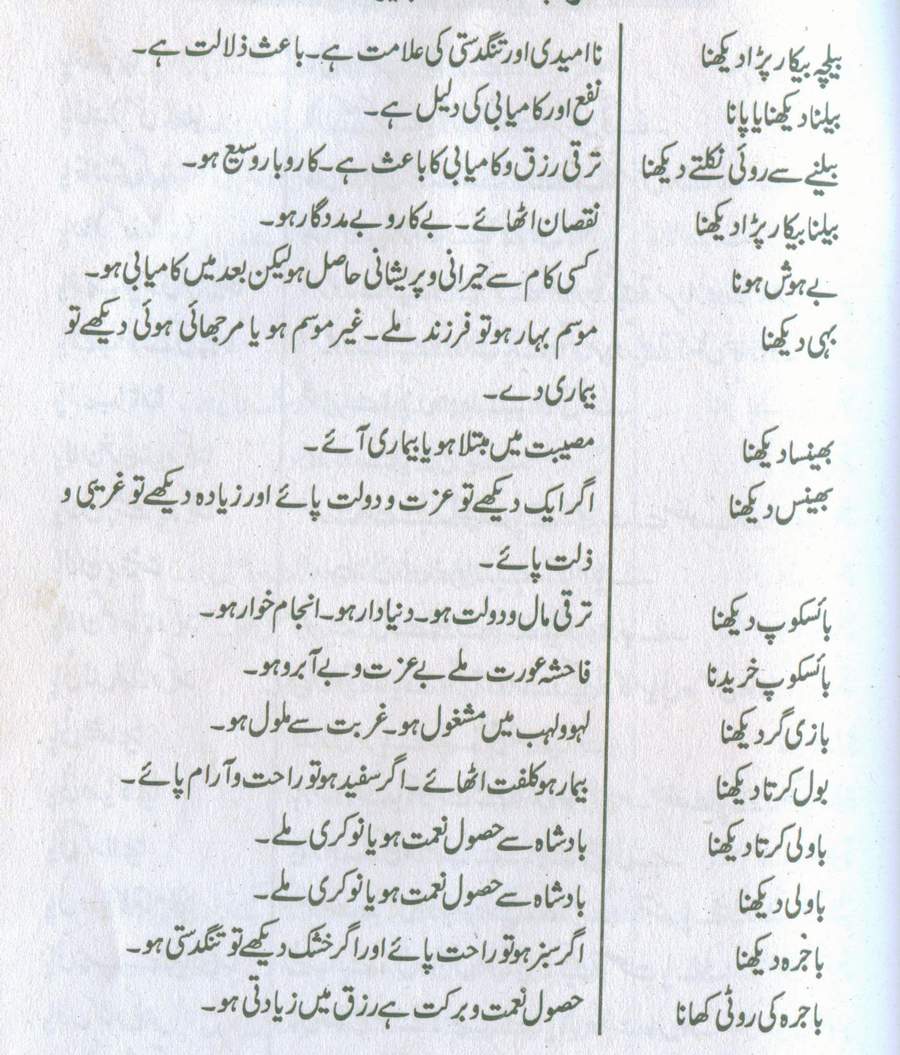 بیلچہ بیکار پڑا دیکھنا نا امیدی اور تنگدستی کی علامت ہے۔ باعث ذلالت ہے۔
بیلنا دیکھنا یا پانا نفع اور کامیابی کی دلیل ہے۔
بیلنے سے روئی نکلتے دیکھنا ترقی رزق و کامیابی کا باعث ہے۔ کاروبار وسیع ہو۔
بیلنا بیکار پڑا دیکھنا نقصان اٹھائے۔ بے کار و بے مددگار ہو۔
بے ہوش ہونا کسی کام سے حیرانی و پریشانی حاصل ہو لیکن بعد میں کامیابی ہو۔
بہی دیکھنا موسم بہار ہو تو فرزند ملے۔ غیر موسم ہو یا مرجھائی ہوئی دیکھے تو
بیماری دے۔
بھینسا دیکھنا مصیبت میں مبتلا ہو یا بیماری آئے۔
بھینس دیکھنا اگر ایک دیکھے تو عزت و دولت پائے اور زیادہ دیکھے تو غریبی و
ذلت پائے۔
بائسکوپ دیکھنا ترقی مال و دولت ہو۔ دنیا دار ہو۔ انجام خوار ہو۔
بائسکوپ خریدنا فاحشہ عورت ملے بے عزت و بے آبرو ہو۔
بازی گر دیکھنا لہو و لہب میں مشغول ہو۔ غربت سے ملول ہو۔
بول کرتا دیکھنا بیمار ہو کلفت اٹھائے۔ اگر سفید ہو تو راحت و آرام پائے۔
باولی کرتا دیکھنا بادشاہ سے حصول نعمت ہو یا نوکری ملے۔
باولی دیکھنا بادشاہ سے حصول نعمت ہو یا نوکری ملے۔
باجرہ دیکھنا اگر سبز ہو تو راحت پائے اور اگر خشک دیکھے تو تنگدستی ہو۔
باجرہ کی روٹی کھانا حصول نعمت و برکت ہے رزق میں زیادتی ہو۔